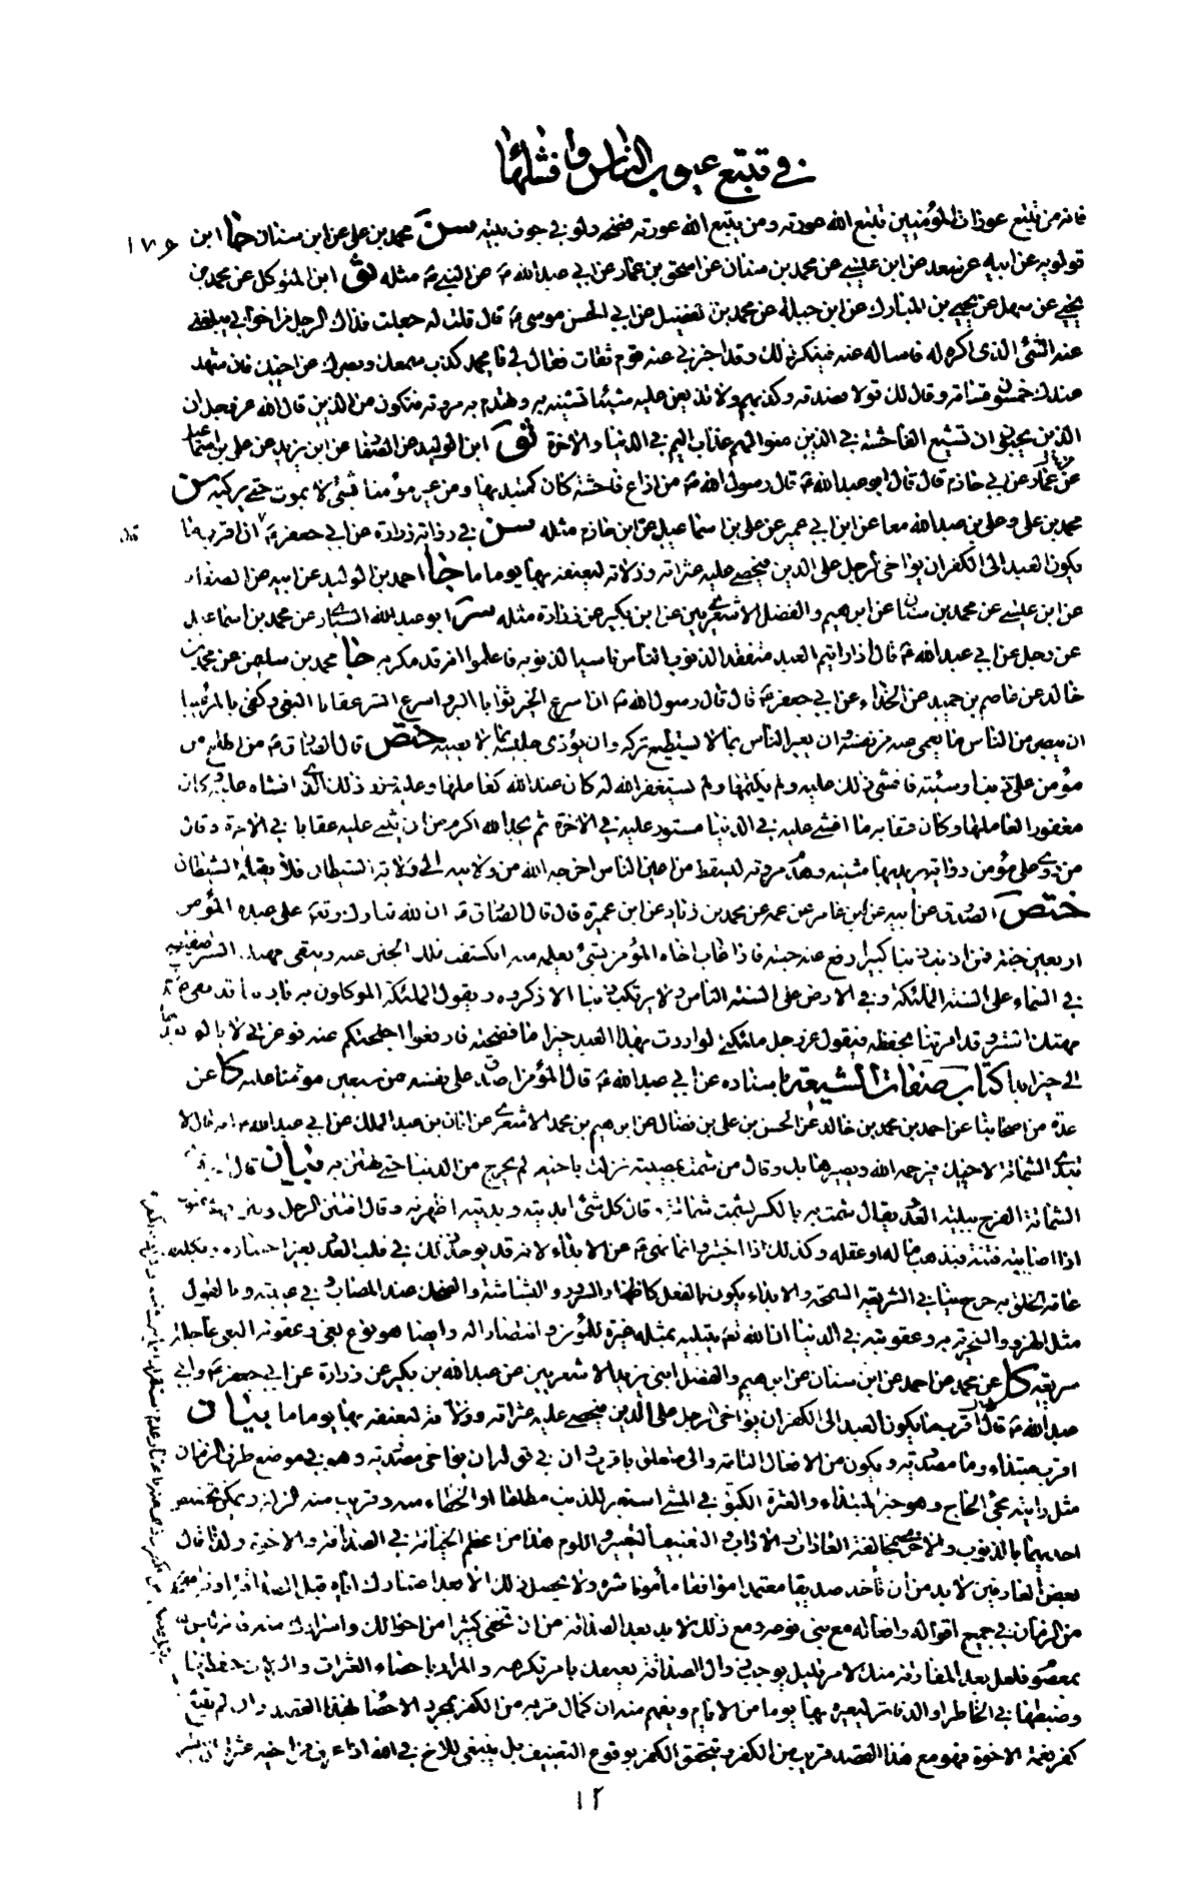 في تتبع عيوب الناس وافشائها
فانه من تتبع عورات المؤمنين تتبع الله عورته ومن يتتبع الله عورته فضحه ولو في جوف بيته سن محمد بن علي عن ابن سنان جا ابن
قولويه عن ابيه عن سعد عن ابن عيسى عن محمد بن سنان عن اسحق بن عمار عن ابي عبد الله ع عن النبي ص مثله ثو ابن المتوكل عن محمد بن
يحيى عن سهل عن يحيى بن المبارك عن ابن جبلة عن محمد بن فضيل عن ابي الحسن موسى ع قال قلت له جعلت فداك الرجل من اخواني يبلغني
عنه الشئ الذي اكره له فاساله عنه فينكر ذلك وقد اخبرني عنه قوم ثقات فقال لي يا محمد كذب سمعك وبصرك عن اخيك فان شهد
عندك خمسون قسامة وقال لك قولا فصدقه وكذبهم ولا تذيعن عليه شيئا تشينه به وتهدم به مروته فتكون من الذين قال الله عز وجل ان
الذين يحبون ان تشيع الفاحشة في الذين امنوا لهم عذاب اليم في الدنيا والاخرة ثو ابن الوليد عن الصفار عن ابن يزيد عن علي بن اسماعيل
عن عمار عن ابي حازم قال قال ابو عبد الله ع قال رسول الله ص من اذاع فاحشة كان كمبتديها ومن عير مؤمنا بشئ لا يموت حتى يركبه سن
محمد بن علي وعلي بن عبد الله معا عن ابن ابي عمير عن علي بن اسماعيل عن ابن حازم مثله سن في رواية زرارة عن ابي جعفر ع ان اقرب ما
يكون العبد الى الكفر ان يواخي الرجل على الدين فيحصي عليه عثراته وزلاته ليعنفه بها يوما ما جا احمد بن الوليد عن ابيه عن الصفار
عن ابن عيسى عن محمد بن سنان عن ابرهيم والفضل الاشعريين عن ابن بكير عن زرارة مثله سر ابو عبد الله السياري عن محمد بن اسماعيل
عن رجل عن ابي عبد الله ع قال اذا رايتم العبد متفقدا لذنوب الناس ناسيا لذنوبه فاعلموا انه قد مكر به جا محمد بن
خالد عن عاصم بن حميد عن الحذاء عن ابي جعفر ع قال قال رسول الله ص ان اسرع الخير ثوابا البر واسرع الشر عقابا البغي وكفى بالمرء عيبا
ان يبصر من الناس ما يعمى عنه من نفسه وان يعير الناس بما لا يستطيع تركه وان يؤذي جليسه بما لا يعنيه ختص قال الصادق ع من اطلع من
مؤمن على ذنب او سيئة فافشى ذلك عليه ولم يكتمها ولم يستغفر الله له كان عند الله كعاملها وعليه وزر ذلك الذي افشاه عليه وكان
مغفورا لعاملها وكان عقابه ما افشى عليه في الدنيا مستور عليه في الاخرة ثم يجد الله اكرم من ان يثني عليه عقابا في الاخرة وقال
من روى على مؤمن رواية يريد بها شينه وهدم مروته ليسقط من اعين الناس اخرجه الله من ولايته الى ولاية الشيطان فلا يقبله الشيطان
ختص الصدوق عن ابيه عن ابن عامر عن عمه عن محمد بن زياد عن ابن عميرة قال قال الصادق ع ان لله تبارك وتعالى على عبده المؤمن
اربعين جنة فمن اذنب ذنبا كبيرا رفع عنه جنة فاذا عاب اخاه المؤمن بشئ يعلمه منه انكشف تلك الجنن عنه ويبقى مهتك الستر فيفتضح
في السماء على السنة الملائكة وفي الارض على السنة الناس ولا يرتكب ذنبا الا ذكروه ويقول الملئكة الموكلون به يا ربنا قد بقي عبدك
مهتك الستر وقد امرتنا بحفظه فيقول عز وجل ملائكتي لو اردت بهذا العبد خيرا ما فضحته فارفعوا اجنحتكم عنه فوعزتي لا يئول بعدها
الى خير ابدا كتاب صفات الشيعة باسناده عن ابي عبد الله ع قال المؤمن اصدق على نفسه من سبعين مؤمنا عليه كا عن
عدة من اصحابنا عن احمد بن محمد بن خالد عن الحسن بن علي بن فضال عن ابرهيم بن محمد الاشعري عن ابان بن عبد الملك عن ابي عبد الله ع انه قال لا
تبدي الشماتة لاخيك فيرحمه الله ويصيرها بك وقال من شمت بمصيبة نزلت باخيه لم يخرج من الدنيا حتى يفتتن به بيان قال
الشماتة الفرح ببلية العدو يقال شمت به بالكسر يشمت شماتة وقال كل شئ ابديته وبديته اظهرته وقال افتتن الرجل وفتن فهو مفتون
اذا اصابته فتنة فيذهب ماله او عقله وكذلك اذا اختبر وانما نهى ع عن الابداء لانه قد يوجد ذلك في قلب العدو بغير اختياره وتكليف
عامة الخلق به حرج ينافي الشريعة السمحة والابداء يكون بالفعل كاظهار السرور والبشاشة والضحك عند المصاب وفي غيبته وبالقول
مثل الهزء والسخرية به وعقوبته في الدنيا ان الله تع يبتليه بمثله غيرة للمؤمن وانتصارا له وايضا هو نوع بغي وعقوبة البغي عاجلة
سريعة كا عن محمد عن احمد عن ابن سنان عن ابرهيم والفضل ابني يزيد الاشعريين عن عبد الله بن بكير عن زرارة عن ابي جعفر ع وابي
عبد الله ع قال اقرب ما يكون العبد الى الكفر ان يواخي الرجل على الدين فيحصي عليه عثراته وزلاته ليعنفه بها يوما ما بيان
اقرب مبتداء وما مصدرية ويكون من الافعال التامة والى متعلق باقرب وان في قوله ان يواخي مصدرية وهو في موضع ظرف الزمان
مثل رايته مجئ الحاج وهو خبر المبتداء والعثرة الكبوة في المشي استعير للذنب مطلقا او الخطاء منه وقريب منه الزلة ويمكن تخصيص
احديهما بالذنوب والاخرى بمخالفة العادات والاداب والتعنيف التعيير واللوم هذا من اعظم الخيانة في الصداقة والاخوة ولذا قال
بعض العارفين لا بد من ان تاخذ صديقا معتمدا موافقا مأمونا شره ولا يحصل ذلك الا بعد اعتبارك اياه قبل الصداقة
من الزمان في جميع اقواله وافعاله مع بني نوعه ومع ذلك لا بد بعد الصداقة من ان تخفي كثيرا من احوالك واسرارك منه فانه ليس
بمعصوم فلعل بعد المفارقة منك لامر قليل يوجب زوال الصداقة يعنفك بامر تكرهه والمراد باحصاء العثرات والزلات حفظها
وضبطها في الخاطر او الدفاتر ليعيره بها يوما من الايام ويفهم منه ان كمال قربه من الكفر بمجرد الاحصاء بهذا القصد وان لم يقع
كفر نعمة الاخوة فهو مع هذا القصد قريب من الكفر ويتحقق الكفر بوقوع التعنيف بل ينبغي للاخ في الله اذا عرف من اخيه عثرة ان ينظر
١٢